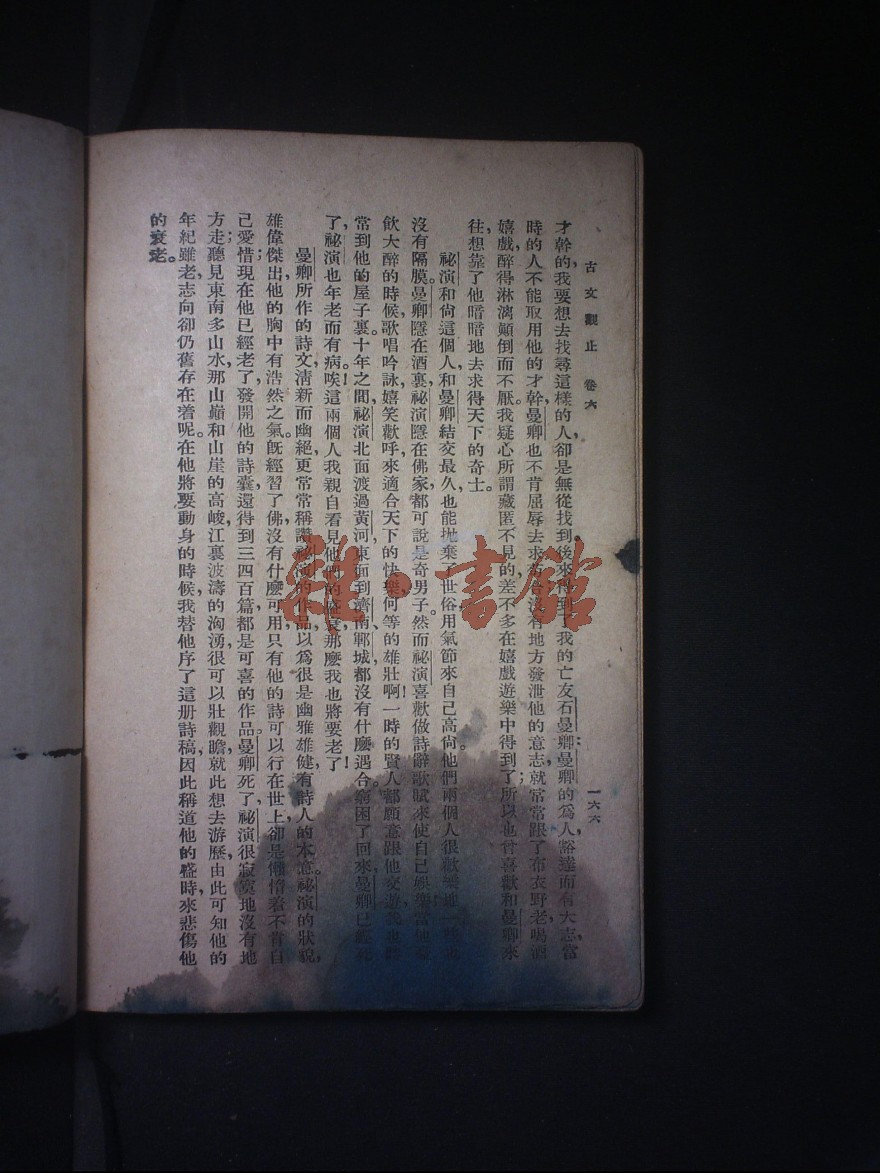 古文觀止 卷六
一六六
才幹的,我要想去找尋這樣的人,卻是無從找到。後來得到了我的亡友石曼卿;曼卿的爲人,豁達而有大志,當
時的人不能取用他的才幹,曼卿也不肯屈辱去求苟合,沒有地方發泄他的意志,就常常跟了布衣野老喝酒
嬉戲,醉得淋漓顛倒而不厭。我疑心所謂藏匿不見的,差不多在嬉戲遊樂中得到了;所以也曾喜歡和曼卿來
往,想靠了他暗暗地去求得天下的奇士。
祕演和尙這個人,和曼卿結交最久,也能拋棄了世俗,用氣節來自己高尙。他們兩個人很歡樂地
沒有隔膜。曼卿隱在酒裏,祕演隱在佛家,都可說是奇男子。然而祕演喜歡做詩辭歌賦來使自己娛樂。當他
飲大醉的時候,歌唱吟詠,嬉笑歡呼,來適合天下的快樂,何等的雄壯啊!一時的賢人,都願意跟他交遊,我也
常到他的屋子裏。十年之間,祕演北面渡過黃河,東面到濟、鄆城,都沒有什麼遇合,窮困了回來,曼卿已經死
了,祕演也年老而有病。唉!這兩個人,我親自看見他們的盛衰,那麼我也將要老了!
曼卿所作的詩文,清新而幽絕,更常常稱讚祕演的作品,以爲很是幽雅雄健,有詩人的本意。祕演的狀貌,
雄偉傑出,他的胸中有浩然之氣。旣經習了佛,沒有什麼可用,只有他的詩可以行在世上,卻是懶惰着不肯自
己愛惜;現在他已經老了,發開他的詩囊,還得到三四百篇,都是可喜的作品。曼卿死了,祕演很寂寞地沒有地
方走;聽見東南多山水,那山巔和山崖的高峻,江裏波濤的洶湧,很可以壯觀瞻,就此想去游歷,由此可知他的
年紀雖老,志向卻仍舊存在着呢。在他將要動身的時候,我替他序了這册詩稿,因此稱道他的盛時,來悲傷他
的衰老。
雜·書館